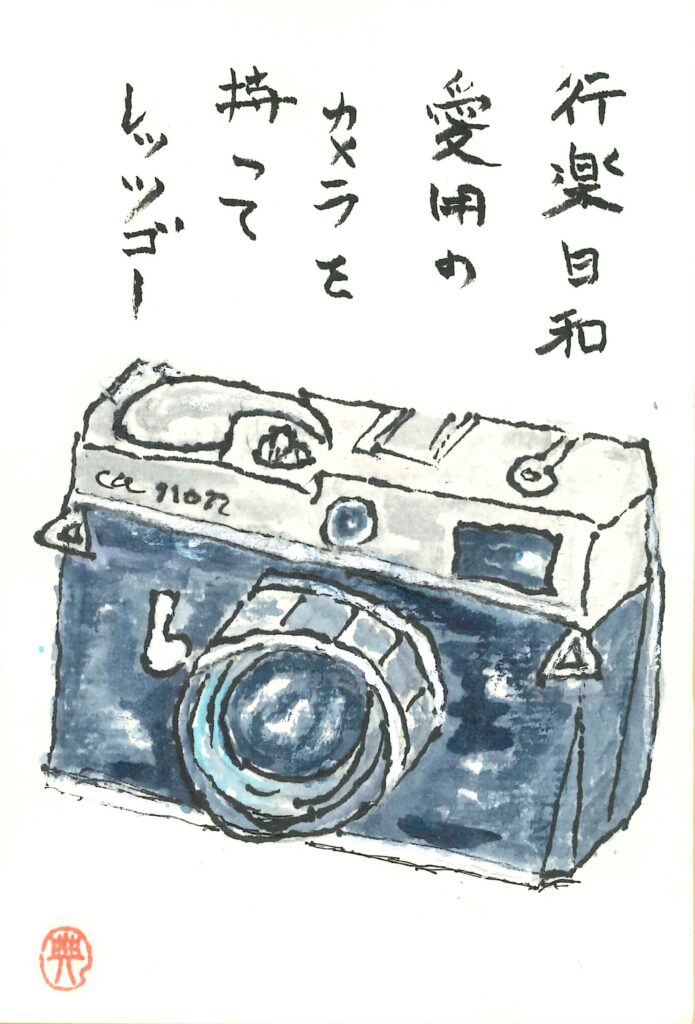 行楽日和
愛用の
カメラを
持って
レッツゴー
canon
典